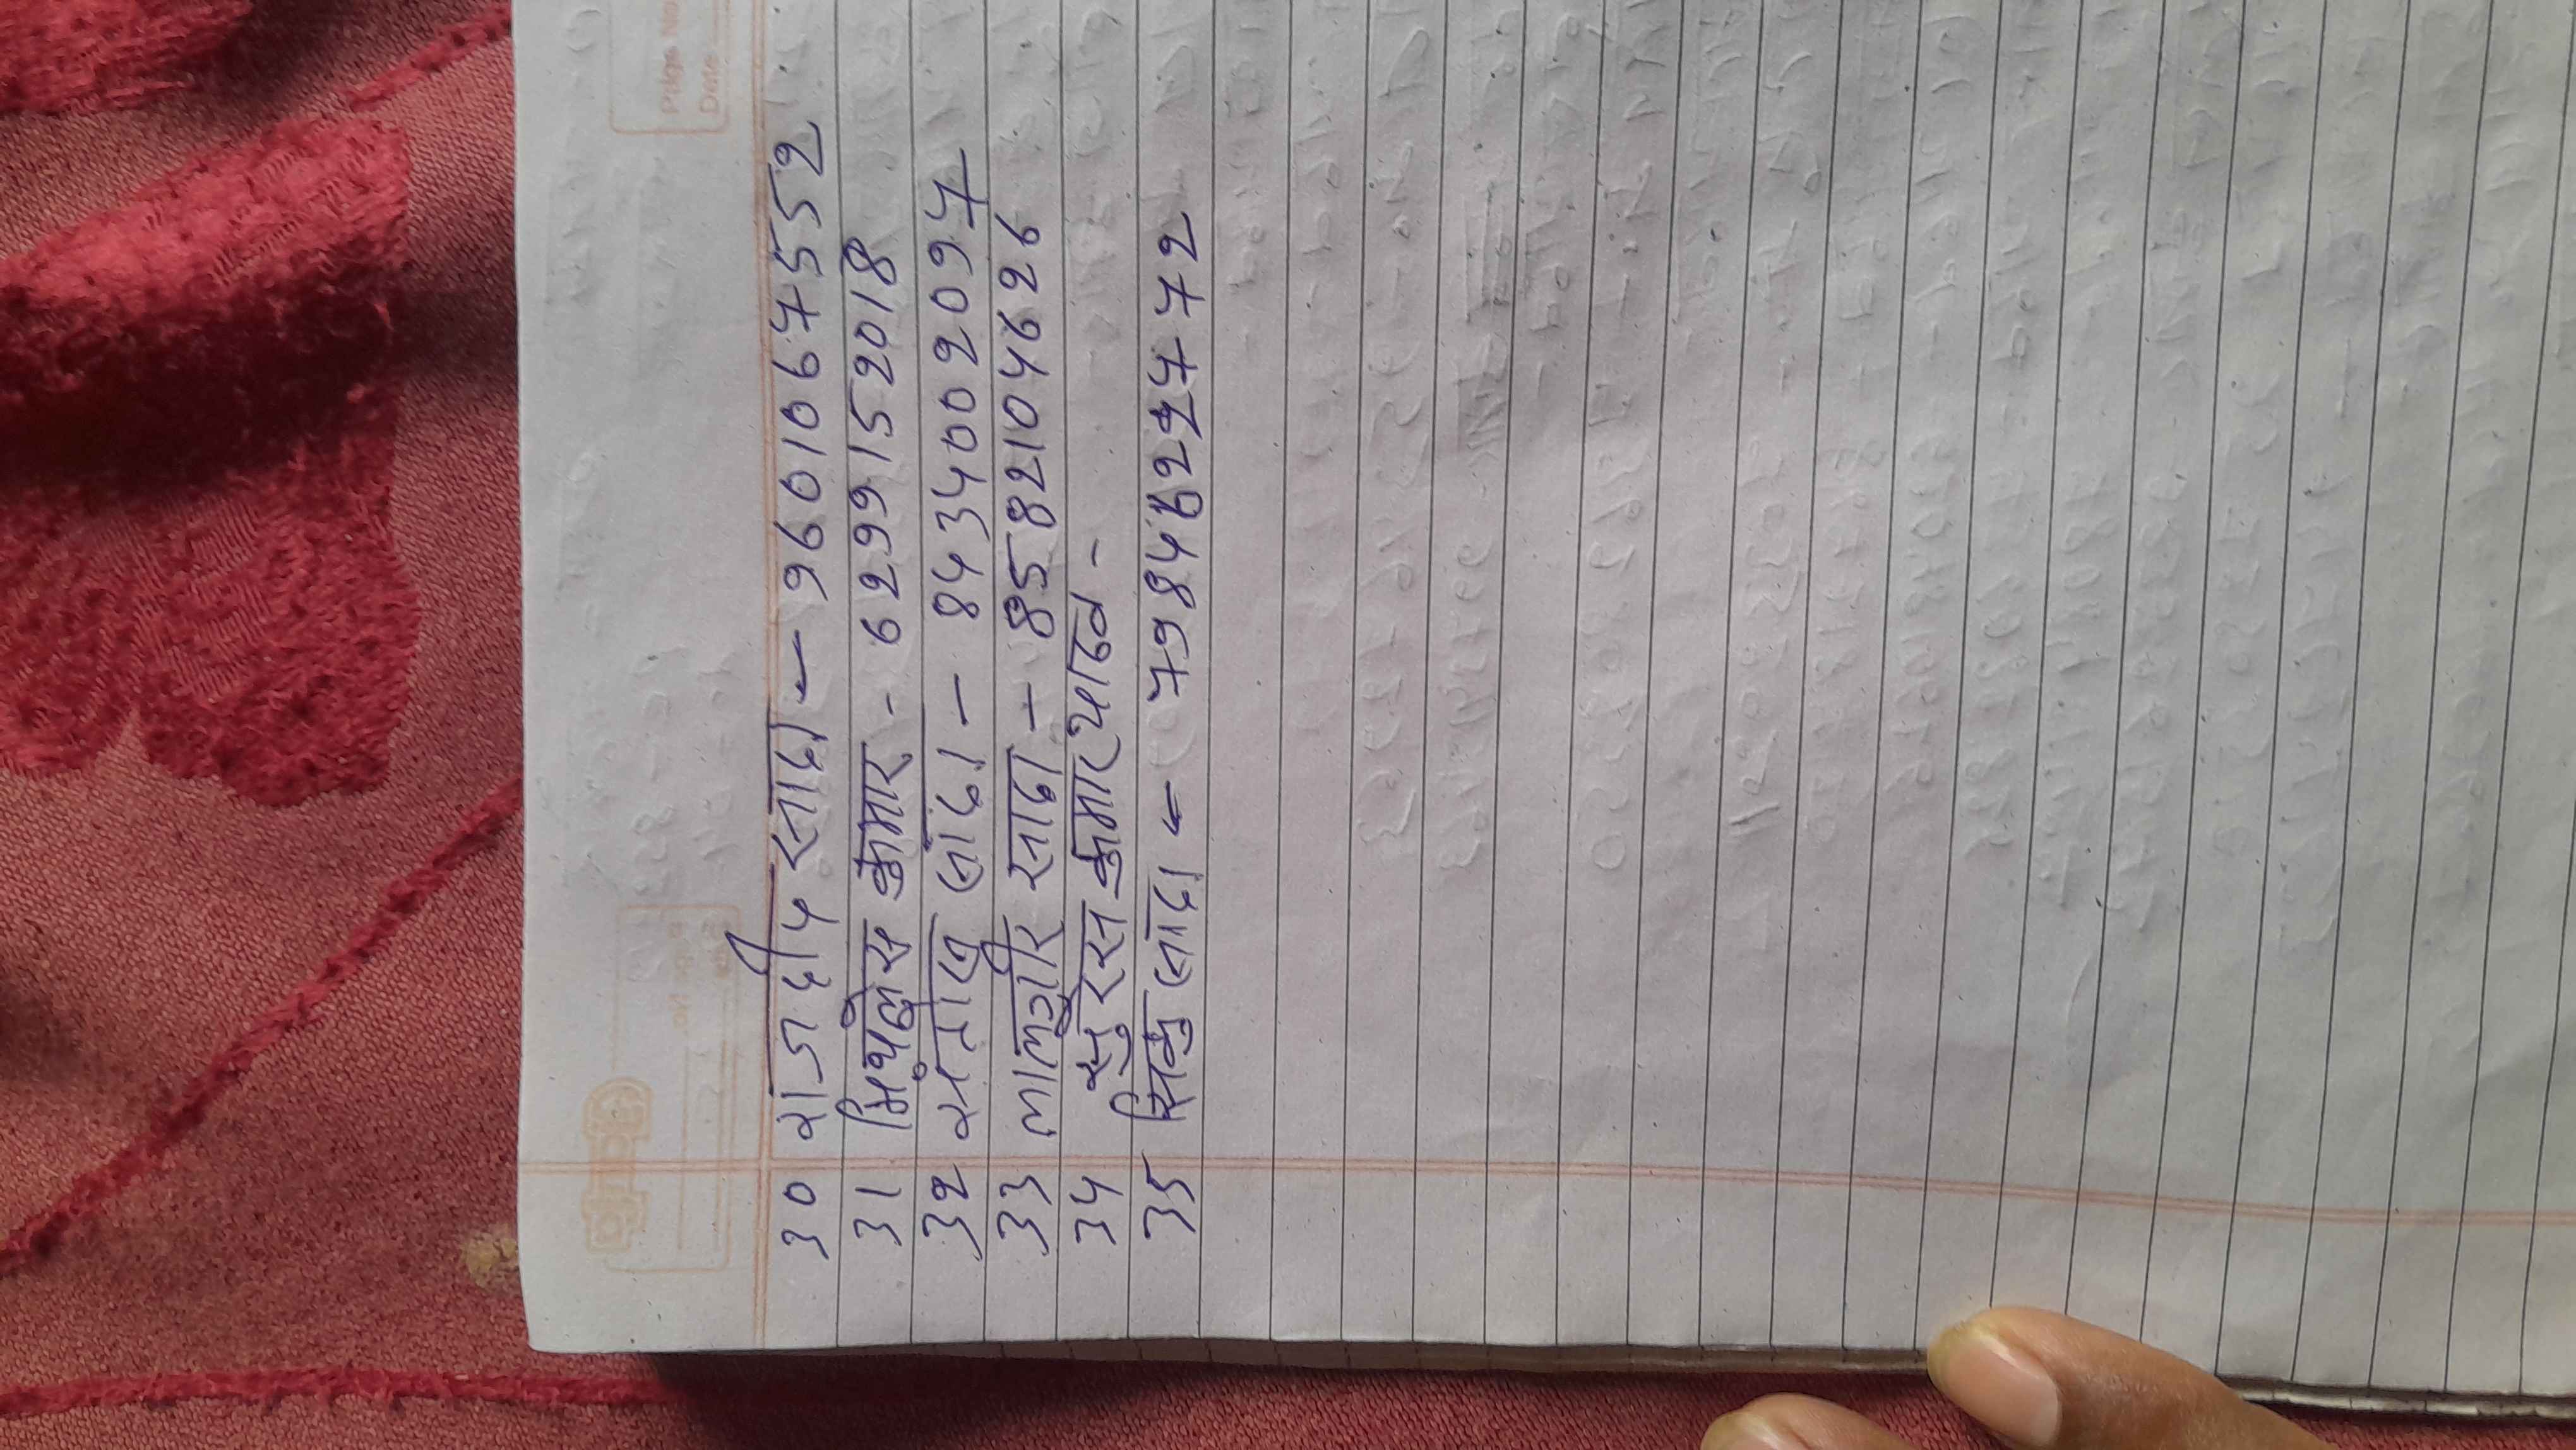 Page No.
Date
30 राजदीप सादा - 9601067552
31 मिथलेस कुमार - 6299152018
32 सरोज सादा - 8434002097
33 लालुगीर सादा - 8582104626
34 सुरेस कुमार यादव -
35 सिकु सादा - 7984622772